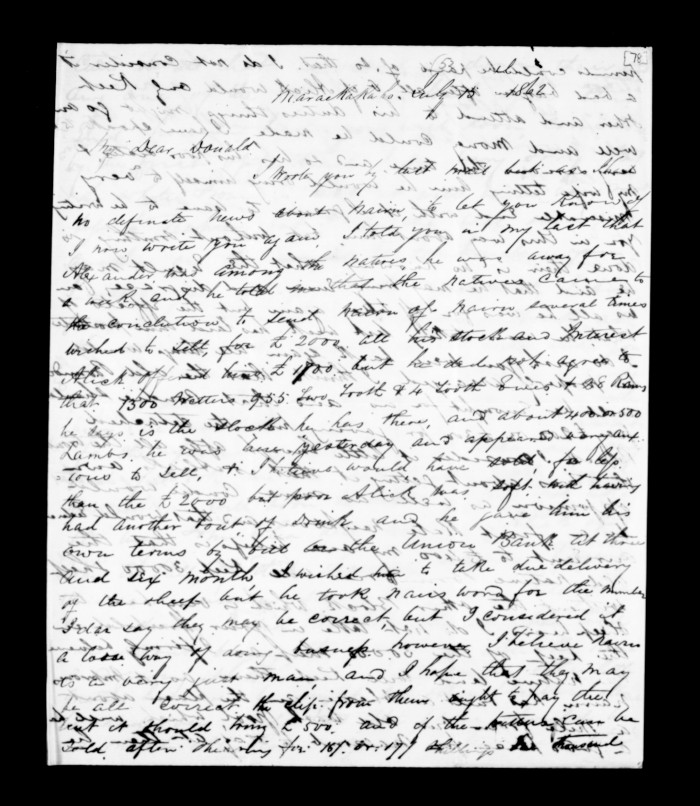 [78]
Maraekakaho July 13
My Dear Donald
I wrote you by last mail but as I have
no definate news about Nairn to let you know of
I now write you again. I told you in my last that
Alexander was among the natives he was away for
a week and he told me that the natives came to
the conclution to send Nairn off Nairn several times
wished to sell, for £2000 all his stock and Interest
Alick offered him £1700 but he did not agree to
that 1300 Wethers 955 Two Tooth & 4 Tooth Ewes & 38 Rams
he says is the stock he has there, and about 400 or 500
Lambs. he was here yesterday and appeared very anx
ious to sell, & I think would have sold for less
than the £2000 but poor Alick was soft and having
had another bout of drink and he gave him his
own terms by bill on the Union Bank at three
and six month I wished him to take due delivery
of the sheep but he took Nairs word for the number
I dar say they may be correct but I considered it
a loose way of doing business however I believe Nairn
to a very just man and I hope that they may
be all correct the clip from them ought to pay the
rent it should bring £500. and if the wethers can be
sold after shearing for 15/ or 17/